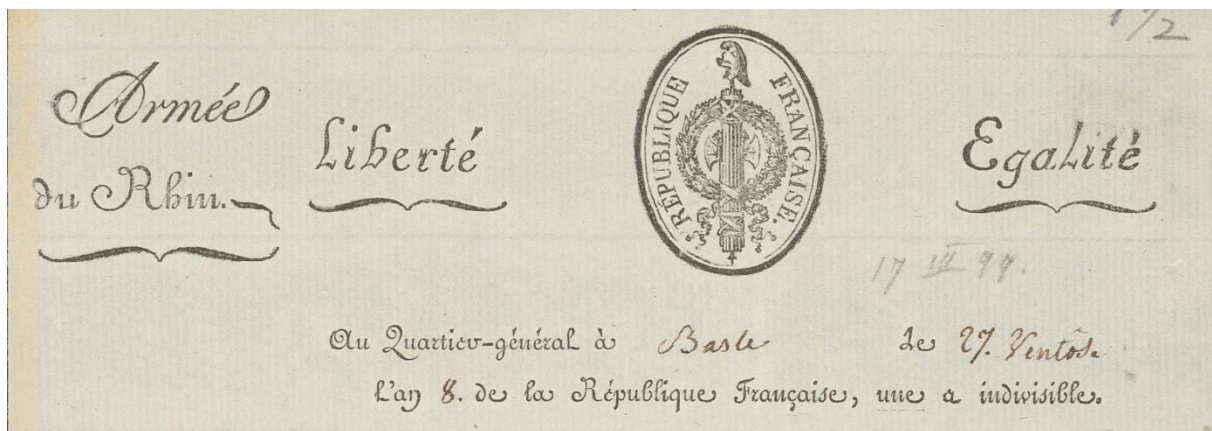 1/2
Armée
du Rhin.
Liberté
RÉPUBLIQUE FRANÇAISE.
Egalité
17 III 99.
Au Quartier-général à Basle le 27. Ventôse
L'an 8. de la République Française, une & indivisible.